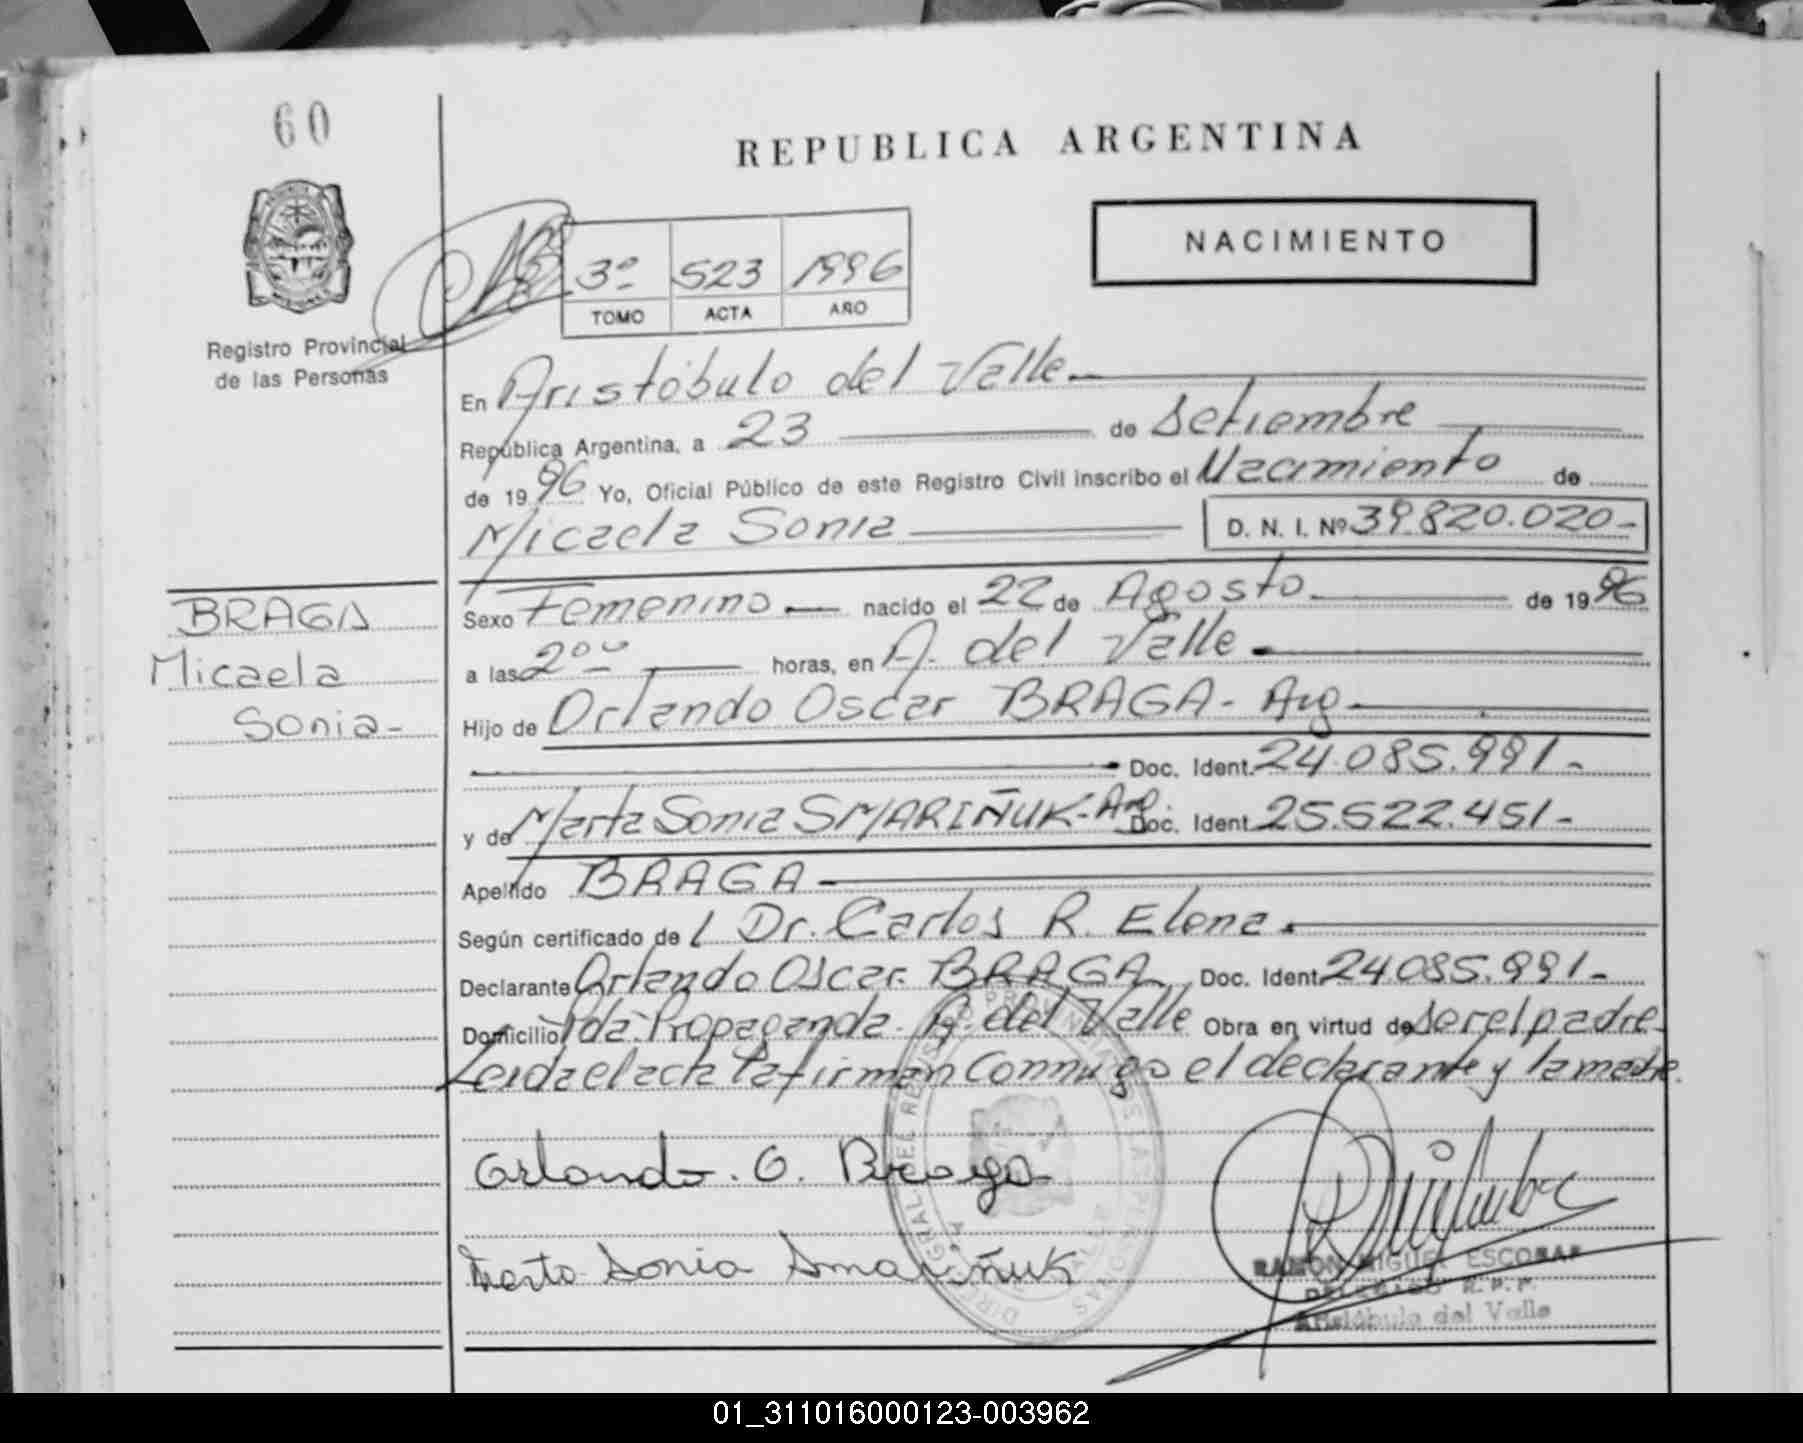 60
REPUBLICA ARGENTINA
NACIMIENTO
3º 523 1996
TOMO ACTA AÑO
Registro Provincial
de las Personas
En Aristóbulo del Valle.
República Argentina, a 23 de Setiembre
de 1996 Yo, Oficial Público de este Registro Civil inscribo el Nacimiento de
Micaela Sonia D. N. I. Nº 39.820.020-
BRAGA
Micaela
Sonia-
Sexo Femenino nacido el 22 de Agosto de 1996
a las 2⁰⁰ horas, en A. del Valle.
Hijo de Orlando Oscar BRAGA- Arg.
Doc. Ident. 24.085.991-
y de Marta Sonia SMARIÑUK-Arg. Doc. Ident 25.522.451-
Apellido BRAGA
Según certificado de l Dr. Carlos R. Elena.
Declarante Orlando Oscar BRAGA Doc. Ident 24.085.991-
Domicilio Pda. Propaganda. A. del Valle Obra en virtud de ser el padre
Leida el acta la firman conmigo el declarante y la madre.
Orlando. O. Braga
Marta Sonia Smariñuk
RAMON MIGUEL ESCOBAR
DELEGADO R.P.P.
Aristóbulo del Valle
01_311016000123-003962